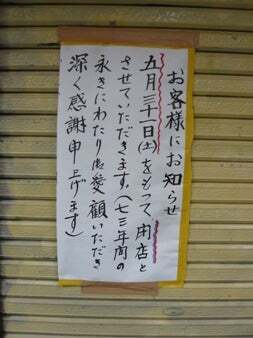 お客様にお知らせ
五月三十一日(土)をもって閉店と
させていただきます。(七三年間の
永きにわたり御愛顧いただき
深く感謝申上げます)